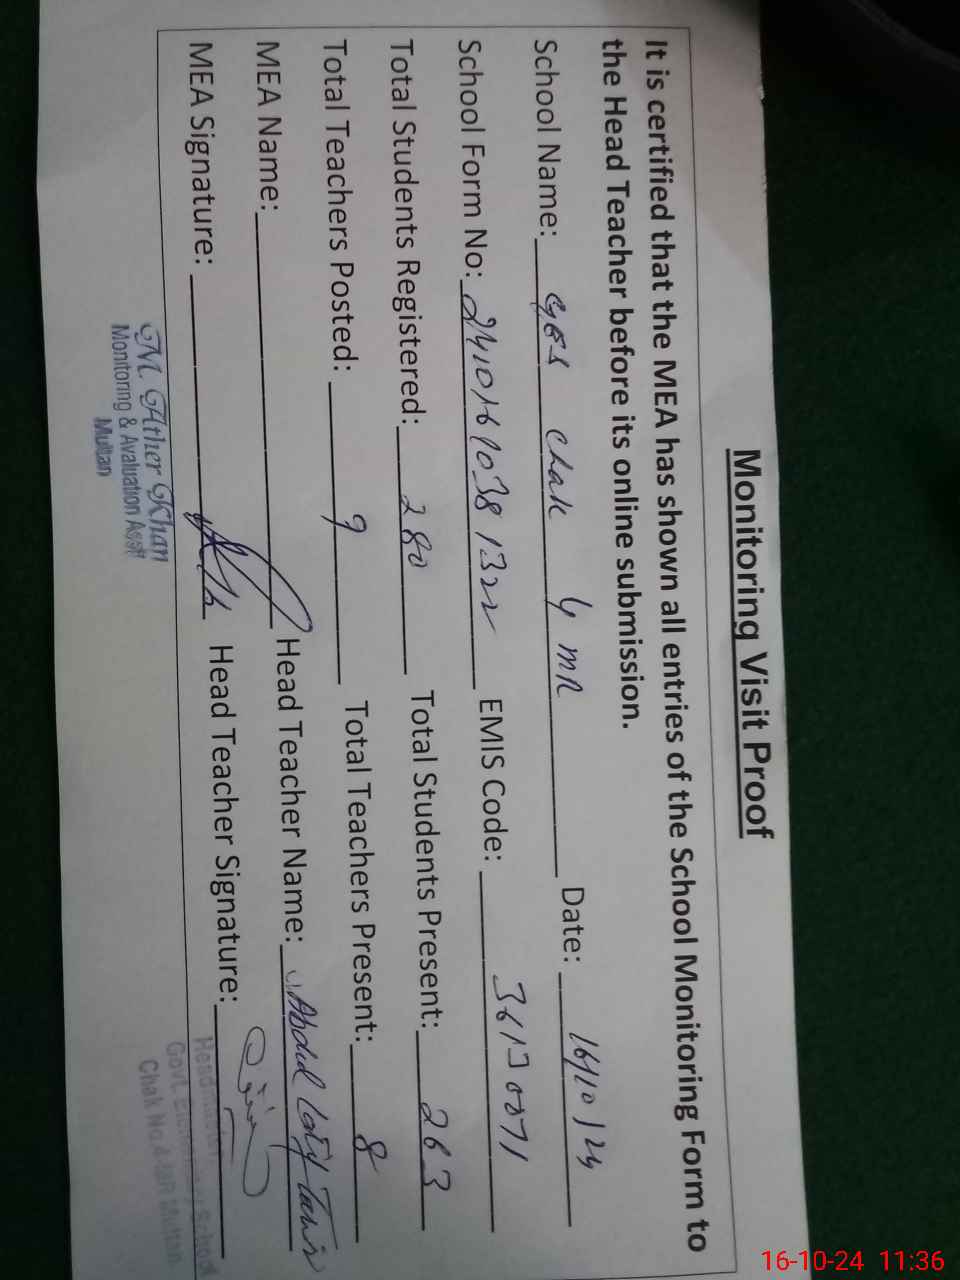 Monitoring Visit Proof
It is certified that the MEA has shown all entries of the School Monitoring Form to
the Head Teacher before its online submission.
School Name: GES Chak 4 MR Date: 16/10/24
School Form No: 24101610381322 EMIS Code: 36130071
Total Students Registered: 280 Total Students Present: 263
Total Teachers Posted: 9 Total Teachers Present: 8
MEA Name: Head Teacher Name: Abdul Latif
MEA Signature: Head Teacher Signature:
M. Ather Khan
Monitoring & Evaluation Asstt
Multan
Govt. Elementary School
Chak No.4
Multan
16-10-24 11:36